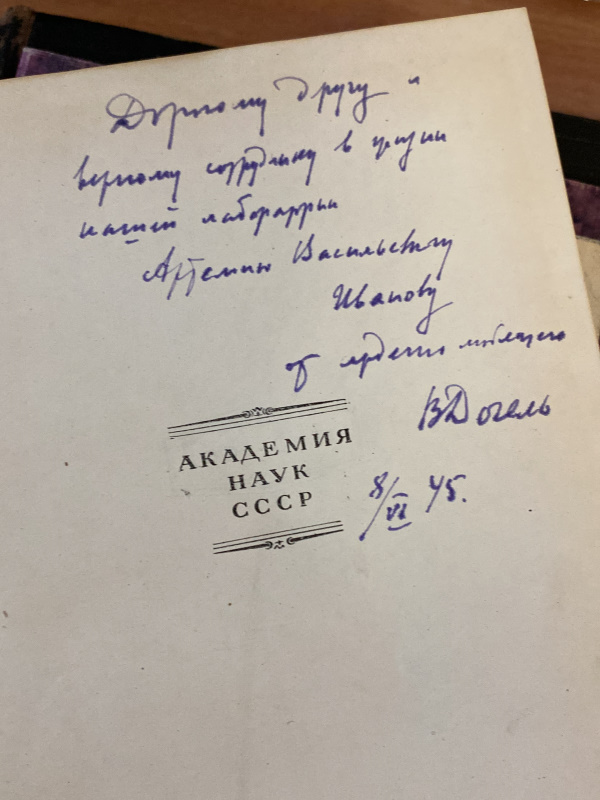 Дорогому другу и
верному сотруднику в жизни
нашей лаборатории
Артемию Васильевичу
Иванову
от
ВДогель
8/VI 45.
АКАДЕМИЯ
НАУК
СССР